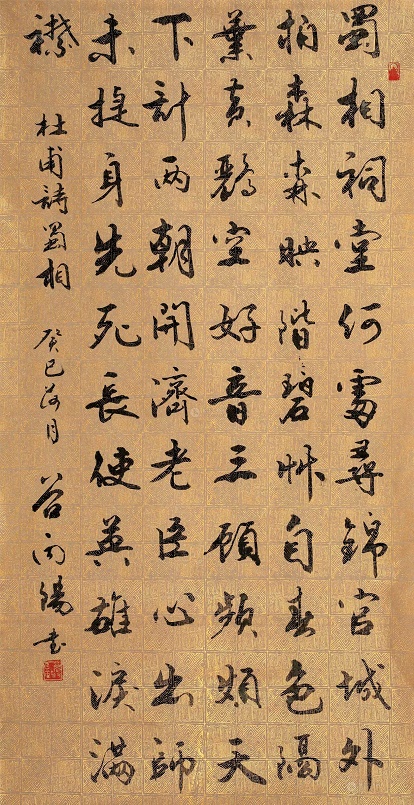 蜀相祠堂何處尋錦官城外
柏森森映階碧艸自春色隔
葉黃鸝空好音三顧頻煩天
下計两朝開濟老臣心出師
未捷身先死長使英雄淚滿
襟
杜甫詩蜀相 癸巳荷月 谷向陽書